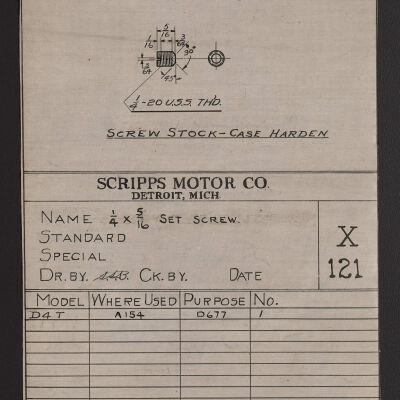 5/16
1/16 3/64
3/64 90°
45°
1/4-20 U.S.S. THD.
SCREW STOCK-CASE HARDEN
SCRIPPS MOTOR CO.
DETROIT, MICH.
NAME 1/4 x 5/16 SET SCREW.
STANDARD
SPECIAL
DR. BY. CK. BY. DATE
X
121
MODEL WHERE USED PURPOSE NO.
D4T A154 D677 1